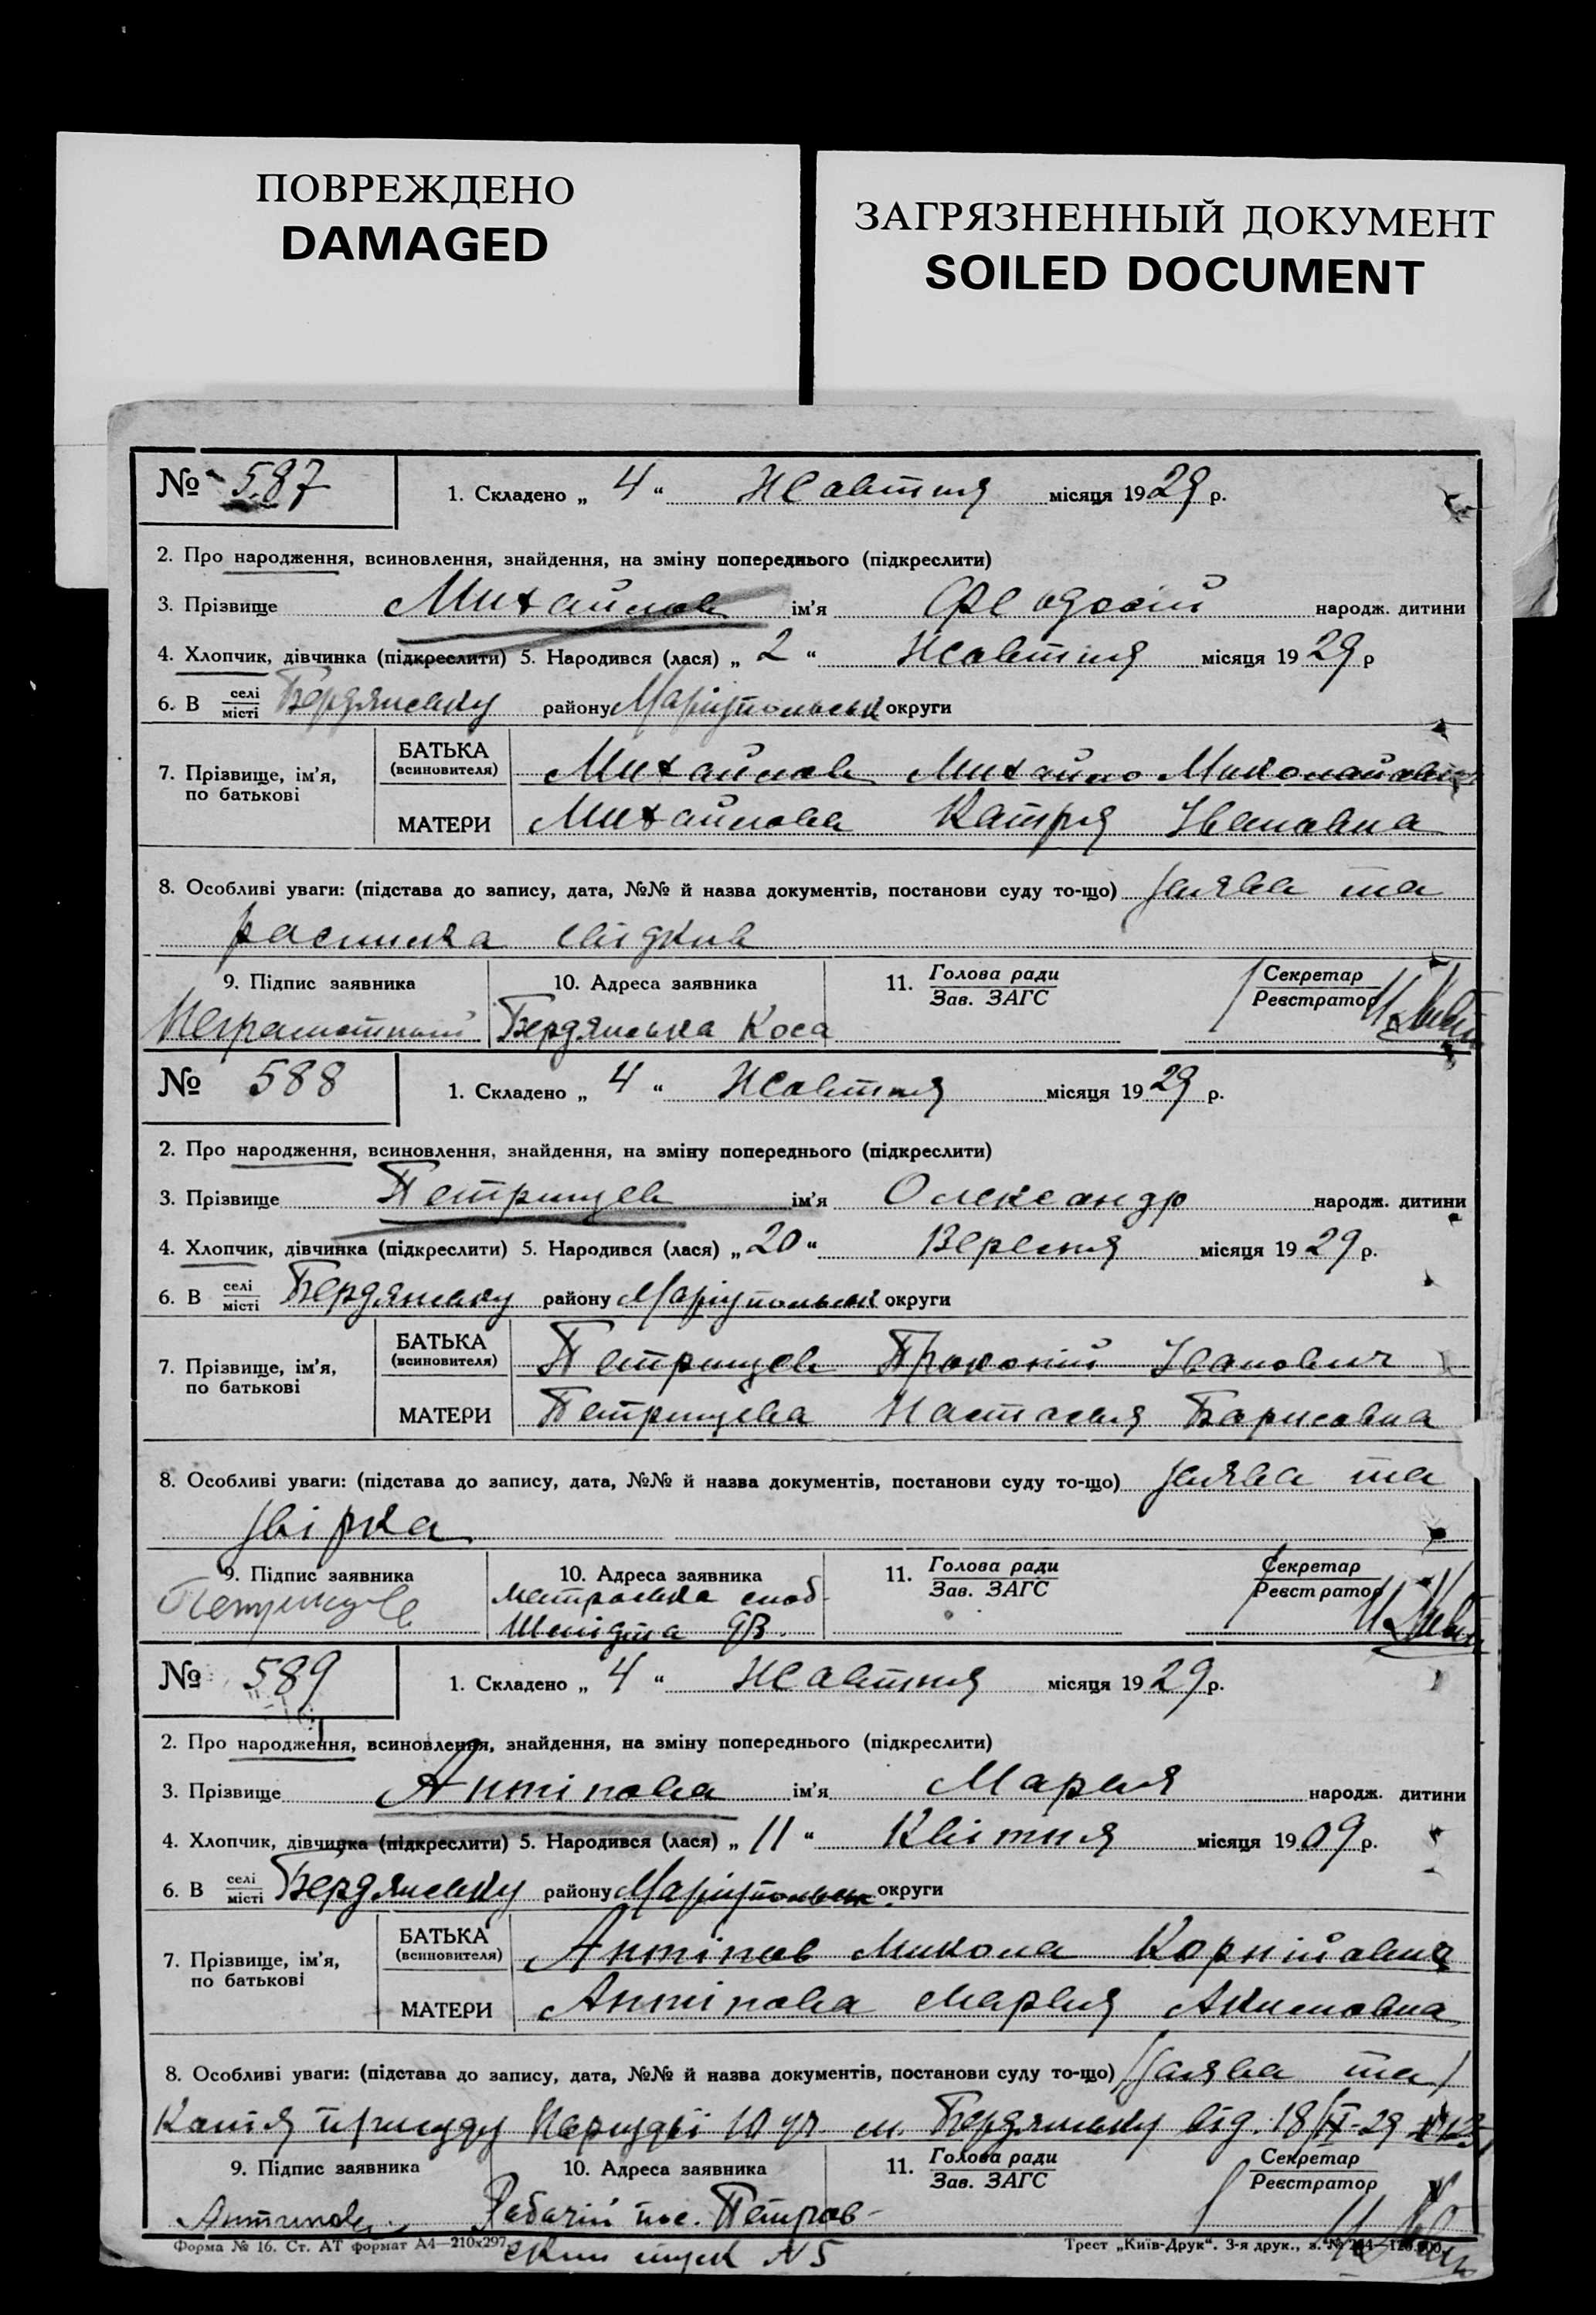 ПОВРЕЖДЕНО
DAMAGED
ЗАГРЯЗНЕННЫЙ ДОКУМЕНТ
SOILED DOCUMENT
№ 587
1. Складено „ 4 “ Жовтня місяця 1929 р.
2. Про народження, всиновлення, знайдення, на зміну попереднього (підкреслити)
3. Прізвище Михайлов ім'я Феодосій народж. дитини
4. Хлопчик, дівчинка (підкреслити) 5. Народився (лася) „ 2 “ Жовтня місяця 1929 р
6. В селі місті Бердянську району Маріупольськ округи
7. Прізвище, ім'я, по батькові
БАТЬКА (всиновителя) Михайлов Михайло Миколайович
МАТЕРИ Михайлова Катря Івановна
8. Особливі уваги: (підстава до запису, дата, №№ й назва документів, постанови суду то-що) Заява та
росписка свідків
9. Підпис заявника 10. Адреса заявника 11. Голова ради Зав. ЗАГС Секретар Реєстратор
Неграмотний Бердянська Коса
№ 588
1. Складено „ 4 “ Жовтня місяця 1929 р.
2. Про народження, всиновлення, знайдення, на зміну попереднього (підкреслити)
3. Прізвище Петрищев ім'я Олександр народж. дитини
4. Хлопчик, дівчинка (підкреслити) 5. Народився (лася) „ 20 “ Вересня місяця 1929 р.
6. В селі місті Бердянську району Маріупольськ округи
7. Прізвище, ім'я, по батькові
БАТЬКА (всиновителя) Петрищев Прокопій Іванович
МАТЕРИ Петрищева Настасья Борисовна
8. Особливі уваги: (підстава до запису, дата, №№ й назва документів, постанови суду то-що) Заява та
звірка
9. Підпис заявника 10. Адреса заявника 11. Голова ради Зав. ЗАГС Секретар Реєстратор
Петрищев слоб.
Шмідта
№ 589
1. Складено „ 4 “ Жовтня місяця 1929 р.
2. Про народження, всиновлення, знайдення, на зміну попереднього (підкреслити)
3. Прізвище Антіпова ім'я Марья народж. дитини
4. Хлопчик, дівчинка (підкреслити) 5. Народився (лася) „ 11 “ Квітня місяця 1909 р.
6. В селі місті Бердянську району Маріупольськ округи
7. Прізвище, ім'я, по батькові
БАТЬКА (всиновителя) Антіпов Микола Корнійович
МАТЕРИ Антіпова Марья Акимовна
8. Особливі уваги: (підстава до запису, дата, №№ й назва документів, постанови суду то-що) Заява та
Копія присуду Нарсуду 10 уч. м. Бердянську від. 18/IX-29
9. Підпис заявника 10. Адреса заявника 11. Голова ради Зав. ЗАГС Секретар Реєстратор
Антипова Рабочій пос. Петров-
ский N 5
Форма № 16. Ст. АТ формат А4—210х297.
Трест „Київ-Друк“. 3-я друк., з. №